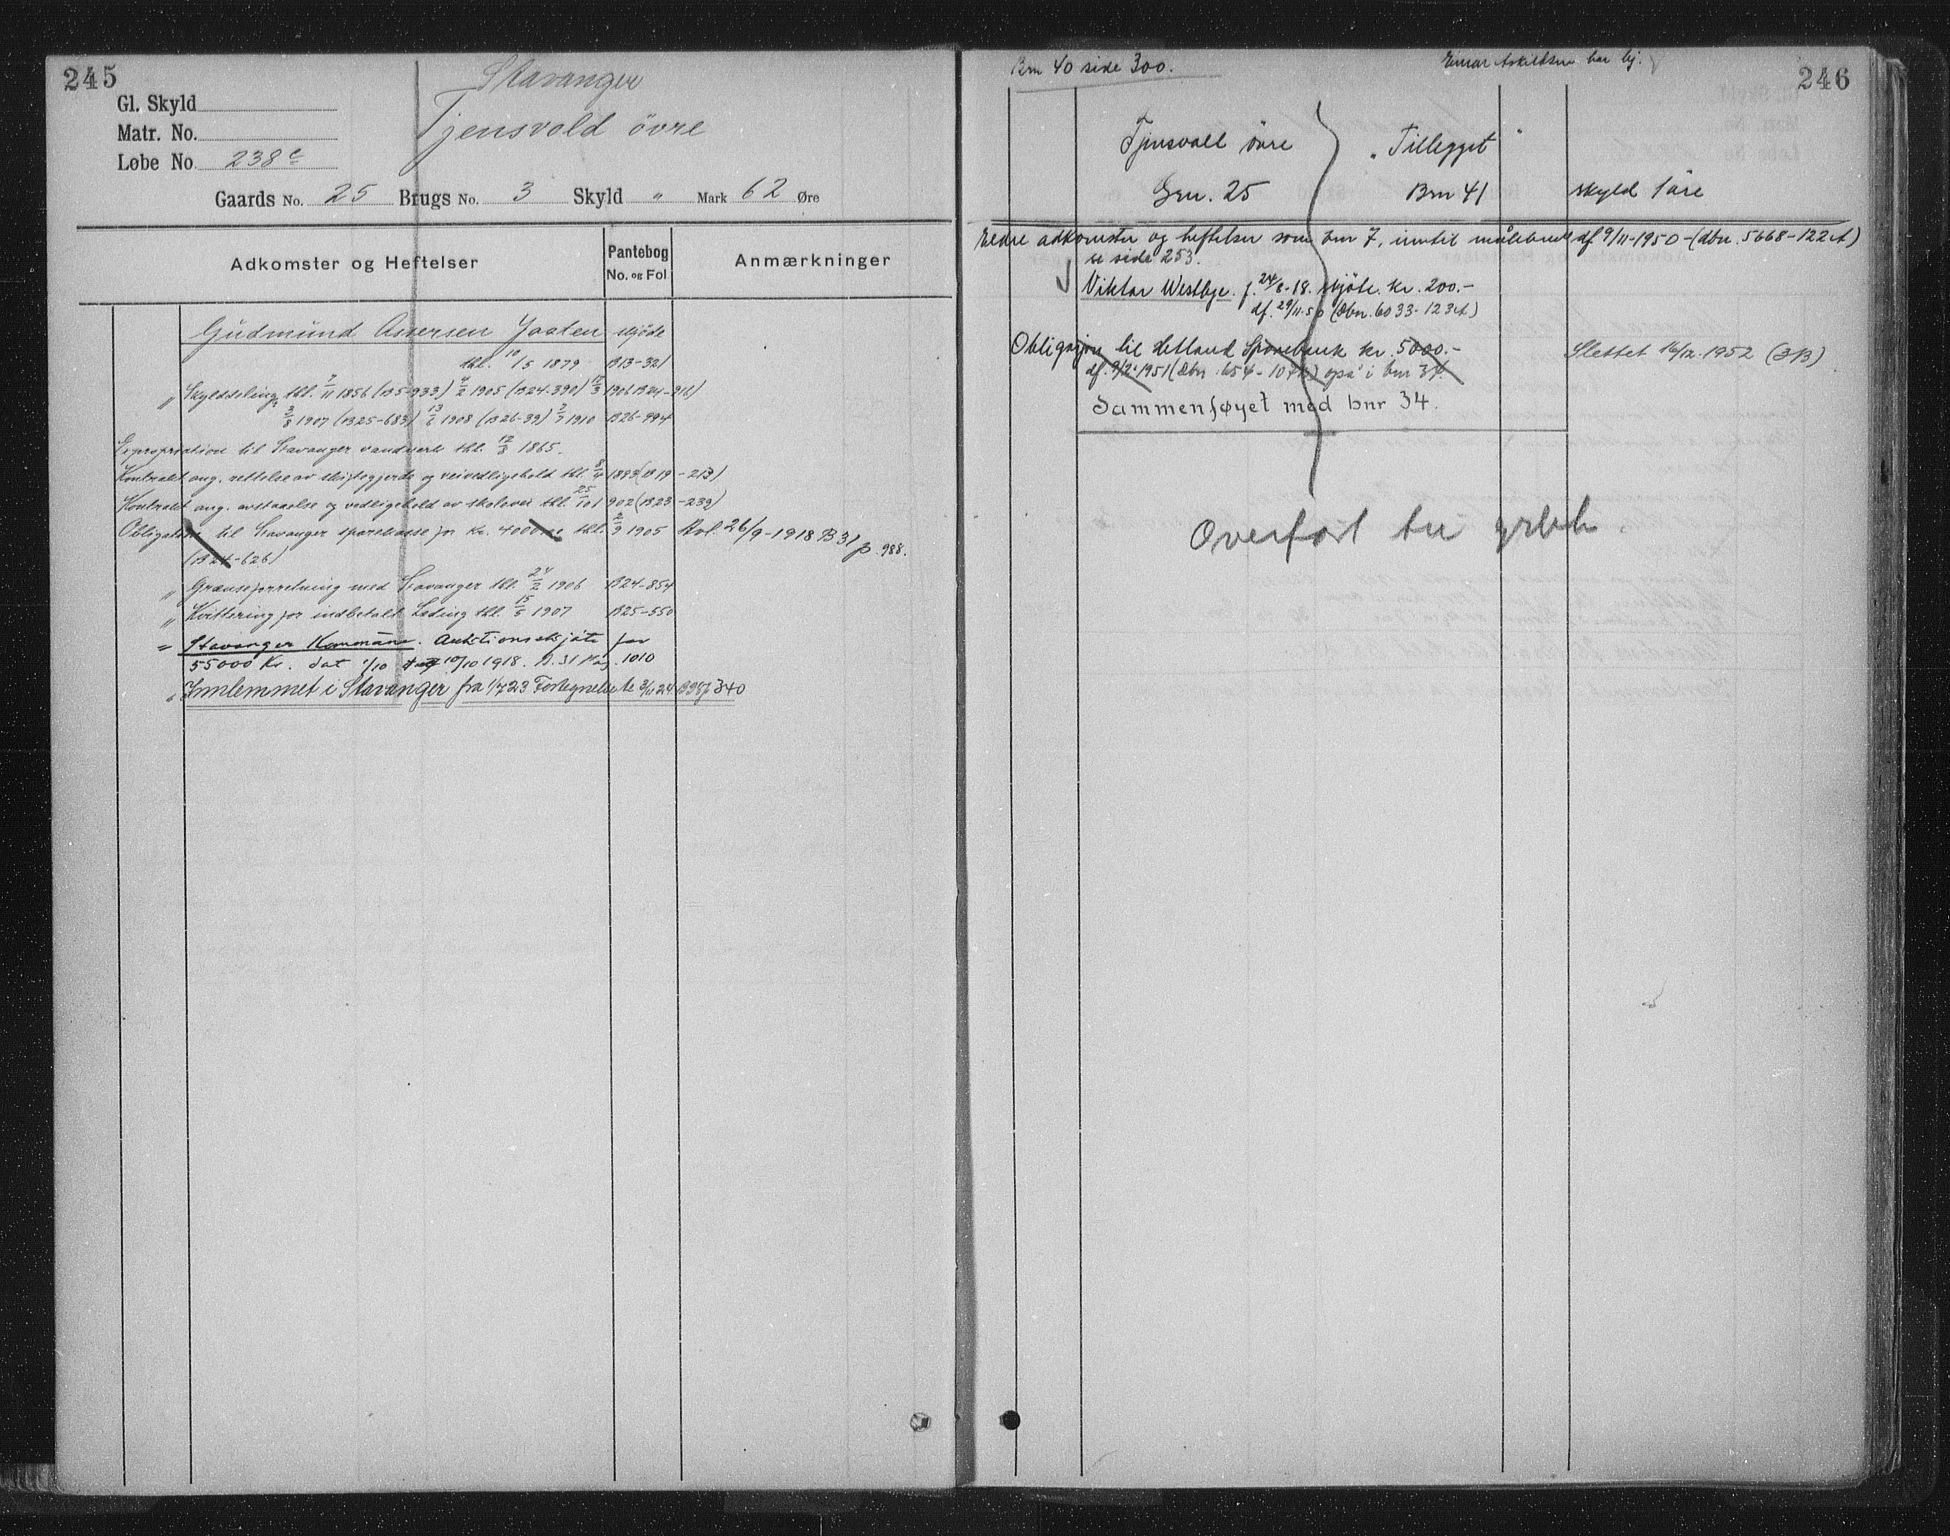 245
Stavanger
Gl. Skyld
Tjensvold övre
Matr. No.
Løbe No. 238 c
Gaards No. 25 Brugs No. 3 Skyld " Mark 62 Øre
Adkomster og Heftelser
Pantebog No. og Fol
Anmærkninger
Gudmund Assersen Jaaten skjöde
thl. 10/5 1879 B13-321
" Skylddeling thl. 7/11 1856 (B5-933) 4/2 1905 (B24-390) 12/3 1906 B24-916)
3/8 1907 (B25-683) 13/2 1908 (B26-39) 2/7 1910 B26-994
Expropriation til Stavanger vandverk thl. 12/8 1865.
Kontrakt ang. rettelse av skiftegjerde og veivedligehold thl. 8/4 1893 (B19-213)
Kontrakt ang. avstaaelse og vedligehold av skolevei thl. 25/10 1902 (B23-239)
Obligation til Stavanger sparekasse for Kr. 4000.00 thl. 2/9 1905 Avl. 26/9-1918 B31 p. 988.
(B24-626)
" Grænseforretning med Stavanger thl. 24/2 1906 B24-854
" Kvittering for indbetalt Leding thl. 15/5 1907 B25-550
= Stavanger Kommune. Auktionsskjöte for
55000 Kr. dat 1/10 10/10 1918. B. 31 Pag. 1010
" Innlemmet i Stavanger fra 1/7 23 Fortegnelse te 3/1 24 B38 p 340
Brn 40 side 300.
Einar Askildsen har hj.
246
Tjensvoll övre "Tillegget"
Grn. 25 Brn 41 skyld 1 öre
Eldre adkomster og heftelser som bnr 7, inntil målebrev df 9/11-1950-(dbn. 5668-122A)
se side 253.
Viktor Westbye f. 24/8-18. skjöte kr. 200.-
df. 29/11-50 (Dbn. 6033-123A)
Obligasjon til Hetland Sparebank kr. 5000.- Slettet 16/12.1952 (3B)
df. 9/2-1951 (Dbn. 654-107B) også i bnr 34.
Sammenføyet med bnr 34.
Overført til grbl.